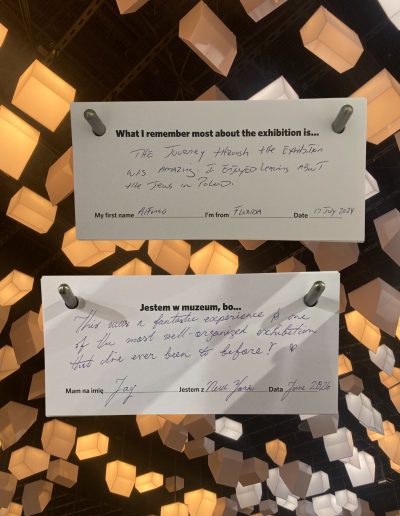 What I remember most about the exhibition is...
THE Journey through the Exhibition
was AMAZING. I ENJOYED LEARNING ABOUT
the Jews in POLAND.
My first name Alfonso I'm from FLORIDA Date 17 July 2024
Jestem w muzeum, bo...
This was a fantastic experience & one
of the most well-organized exhibition
that I've ever been to before! ♡
Mam na imię Jay Jestem z New York Data June 2026